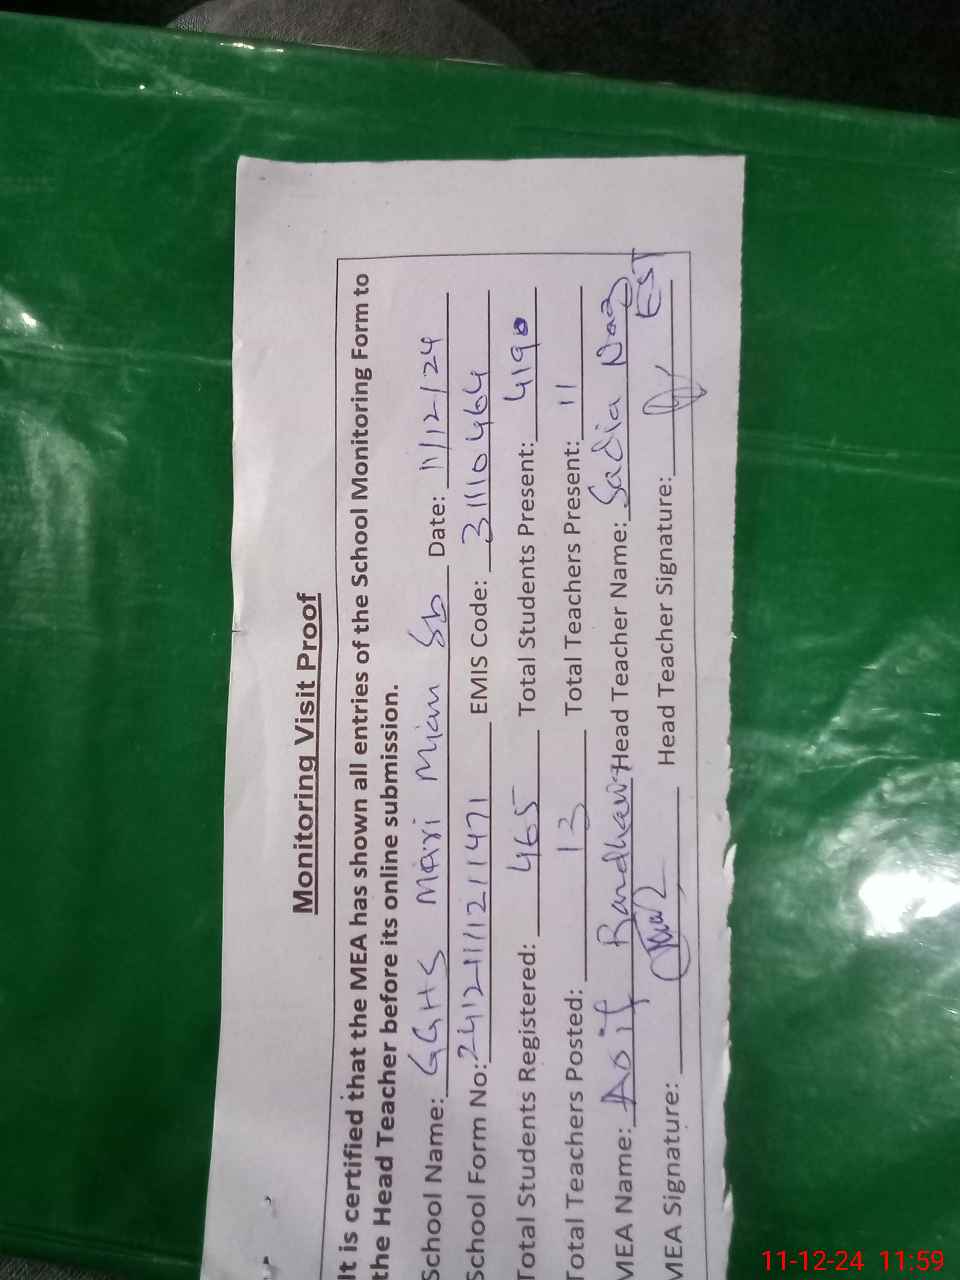 Monitoring Visit Proof
It is certified that the MEA has shown all entries of the School Monitoring Form to
the Head Teacher before its online submission.
School Name: GGHS Mari Mian Sb Date: 11/12/24
School Form No: 24121111211471 EMIS Code: 31110464
Total Students Registered: 465 Total Students Present: 419
Total Teachers Posted: 13 Total Teachers Present: 11
MEA Name: Asif Randhawa Head Teacher Name: Sadia Naz
MEA Signature: Head Teacher Signature: EST
11-12-24 11:59